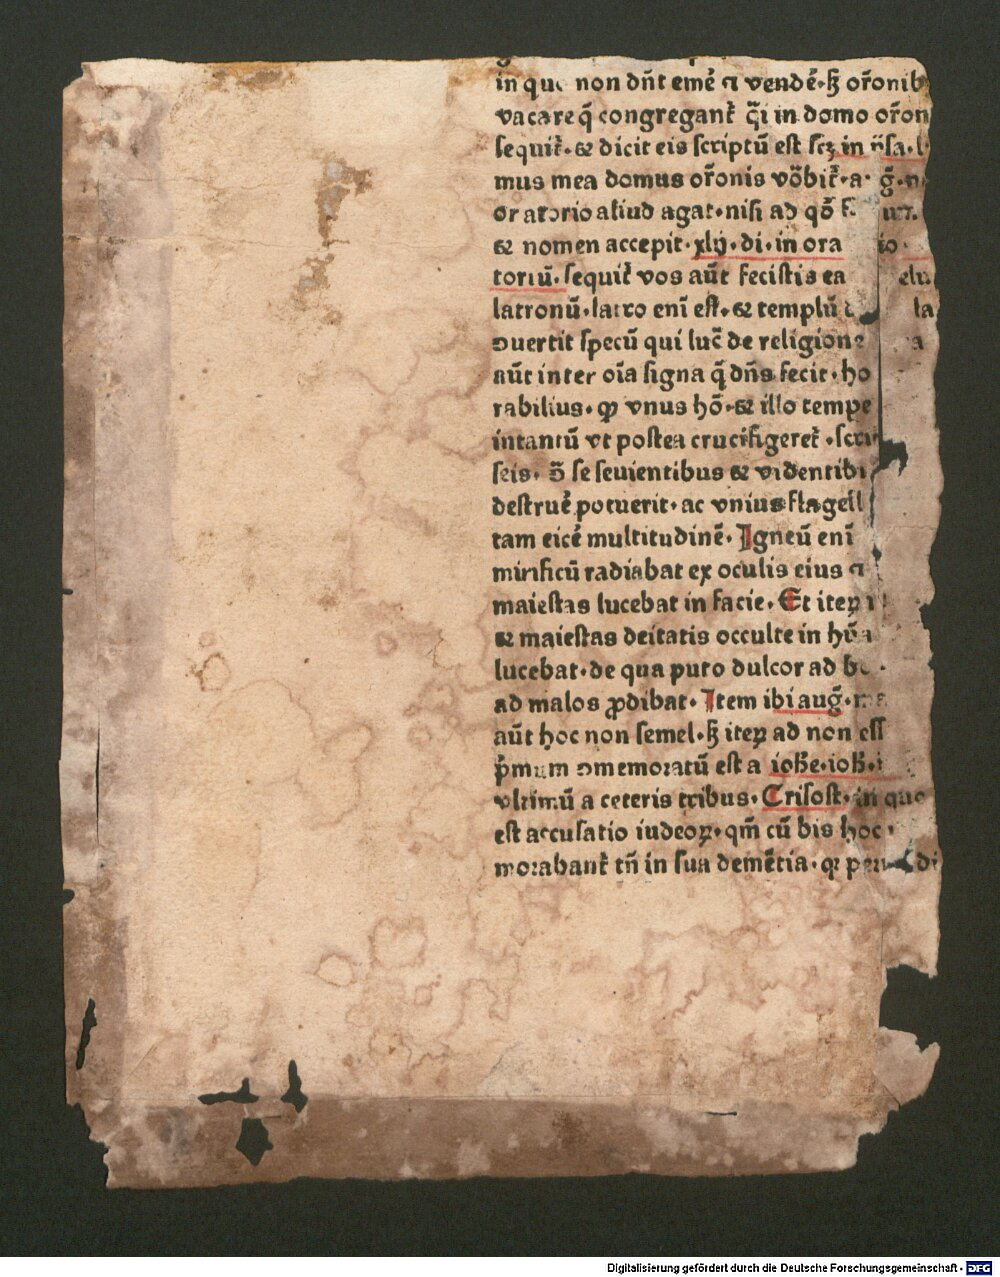 in qu non dñt emẽ ⁊ vendẽ·ſꝫ or̃onib
vacare q̃ congregant̃ q̃i in domo or̃on
ſequit̃·⁊ dicit eis ſcriptũ eſt ſcꝫ in
mus mea domus or̃onis vo̊bit̃·a· g̃·
oratorio aliud agat·niſi ad qð
⁊ nomen accepit·xlij·di·in ora io
toriũ·ſequit̃ vos aũt feciſtis ea elu
latronũ·latro enĩ eſt·⁊ templũ la
ꝯuertit ſpecũ qui luc̃ de religione a
aũt inter oĩa ſigna q̃ dñs fecit·ho
rabilius·ꝙ vnus hõ·⁊ illo tempe
intantũ vt poſtea crucifigeret̃·ſcri
ſeis· ſe ſeuientibus ⁊ videntibu
deſtruẽ potuerit·ac vnius flagell
tam eicẽ multitudinẽ·Igneũ enĩ
mirificũ radiabat ex oculis eius ⁊
maieſtas lucebat in facie·Et iteꝝ
⁊ maieſtas deitatis occulte in hũa
lucebat·de qua puto dulcor ad b
ad malos ꝓdibat·Item ibi aug̃·
aũt hoc non ſemel·ſꝫ iteꝝ ad non eſſ
p̃mum ꝯmemoratũ eſt a iohe·ioh·i
vltimũ a ceteris tribus·Criſoſt·in quo
eſt accuſatio iudeoꝝ·qm̃ cũ bis hoc
morabant̃ tñ in ſua demẽtia· di
Digitalisierung gefördert durch die Deutsche Forschungsgemeinschaft - DFG